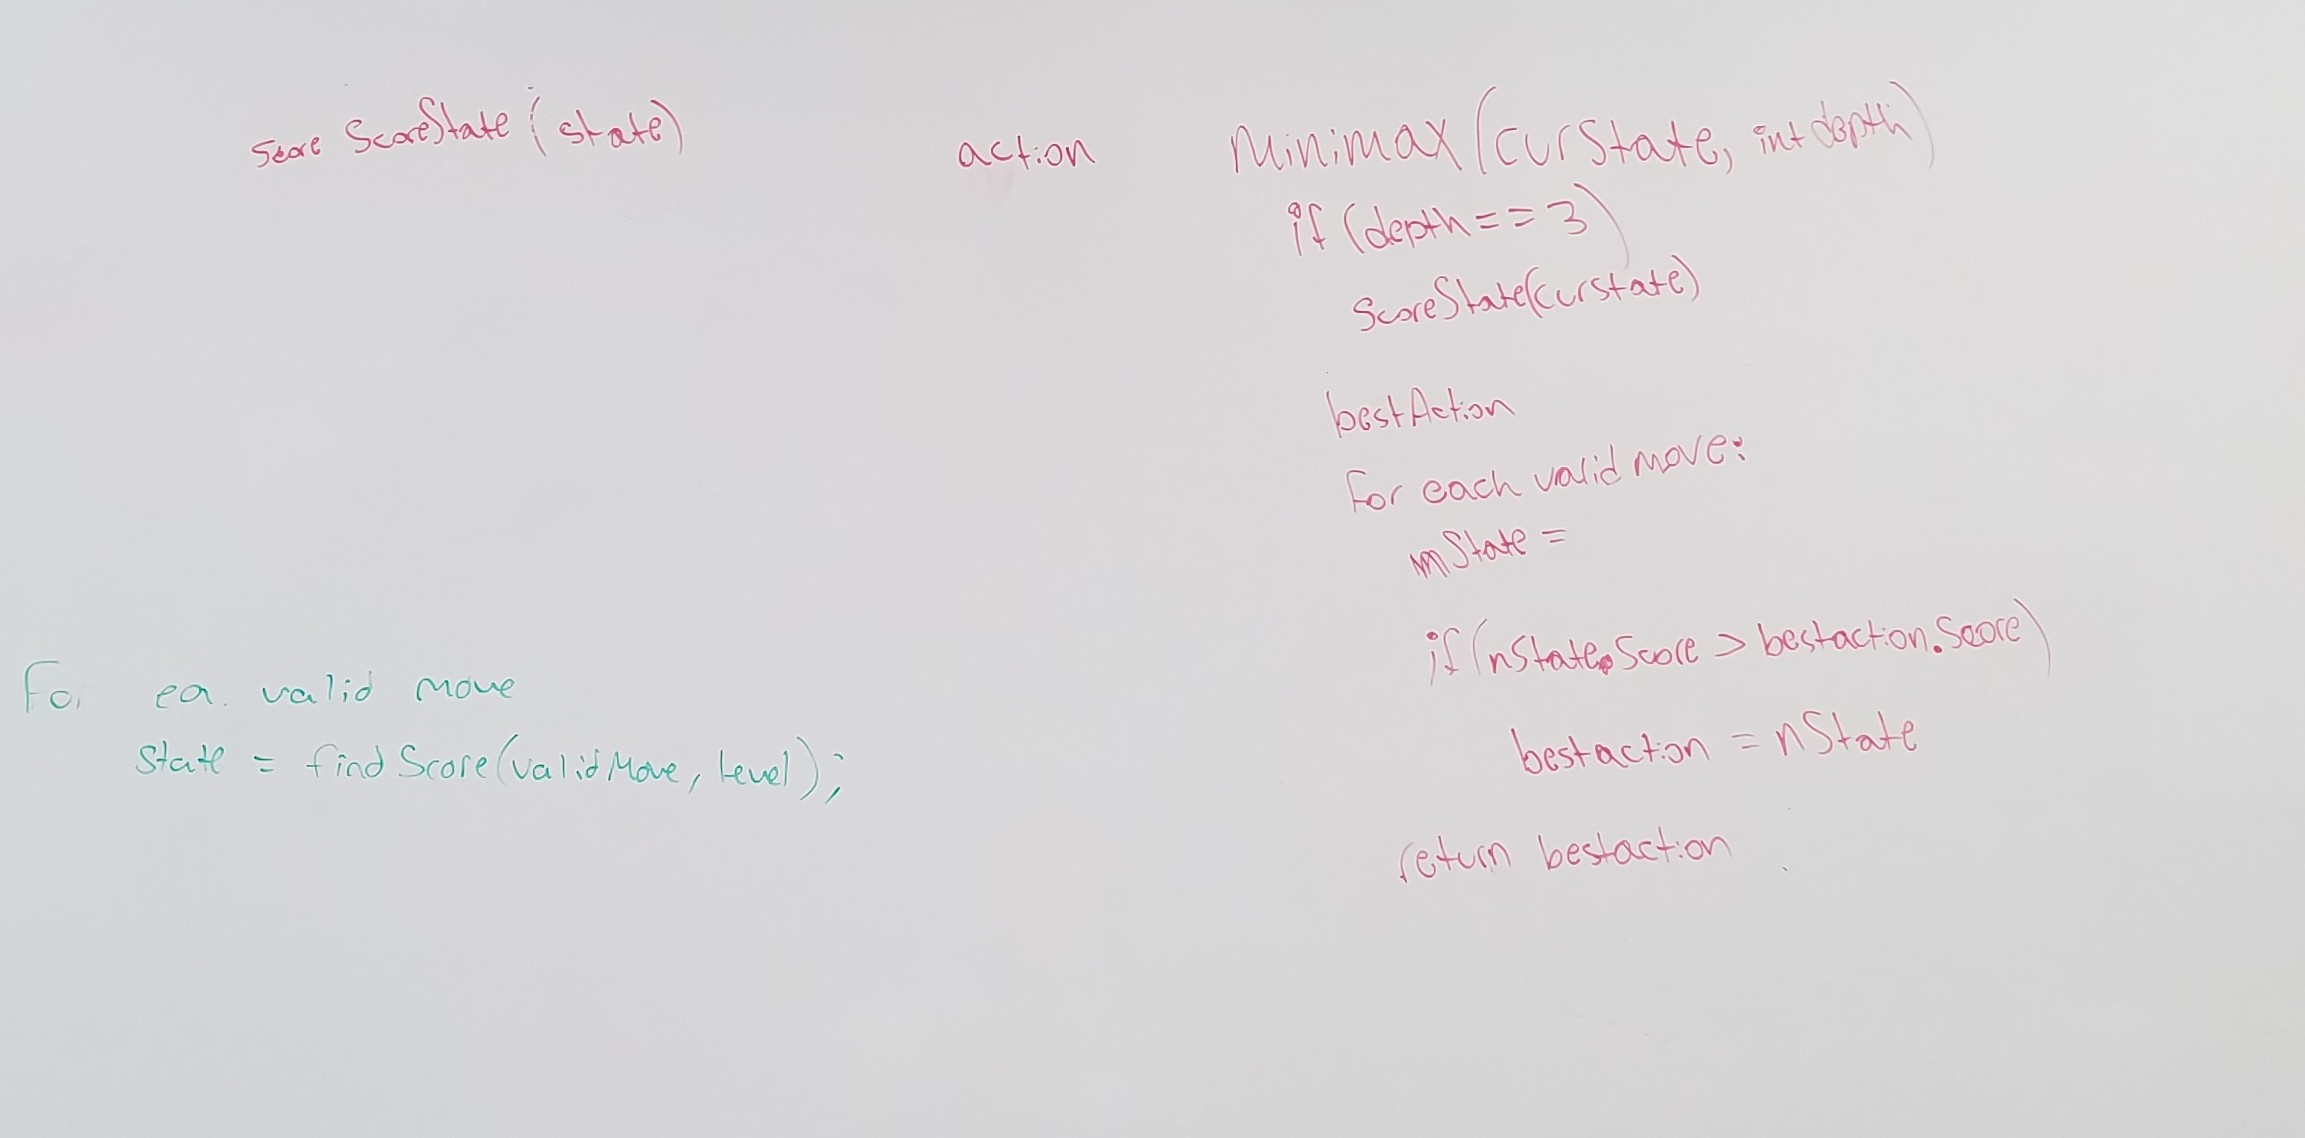 Score ScoreState (state)
action Minimax (curState, int depth)
if (depth == 3)
ScoreState(curstate)
bestAction
For each valid move:
mState =
if (nState.Score > bestaction.Score)
bestaction = nState
return bestaction
For ea. valid move
State = findScore(validMove, Level);